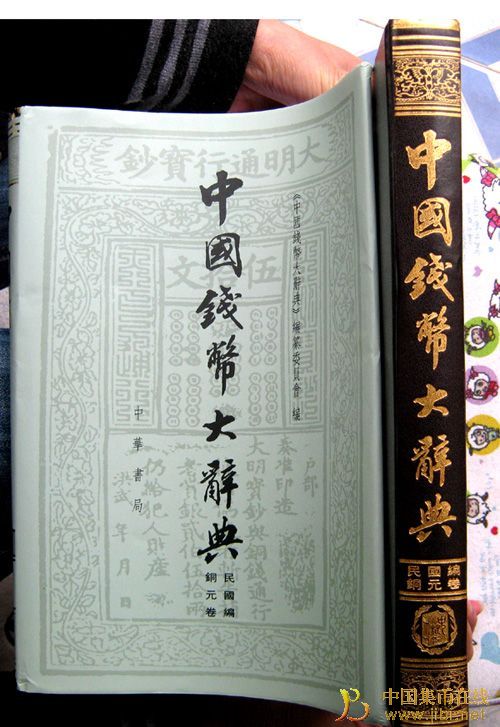 大明通行寶鈔
伍
文
中國錢幣大辭典
《中國錢幣大辭典》編纂委員會 編
中華書局
民國編
銅元卷
户部
奏准印造
大明寶鈔與銅錢通行
仍給犯人財產
洪武 年 月 日
中國錢幣大辭典
民國編
銅元卷
中国集币在线
www.jibi.net